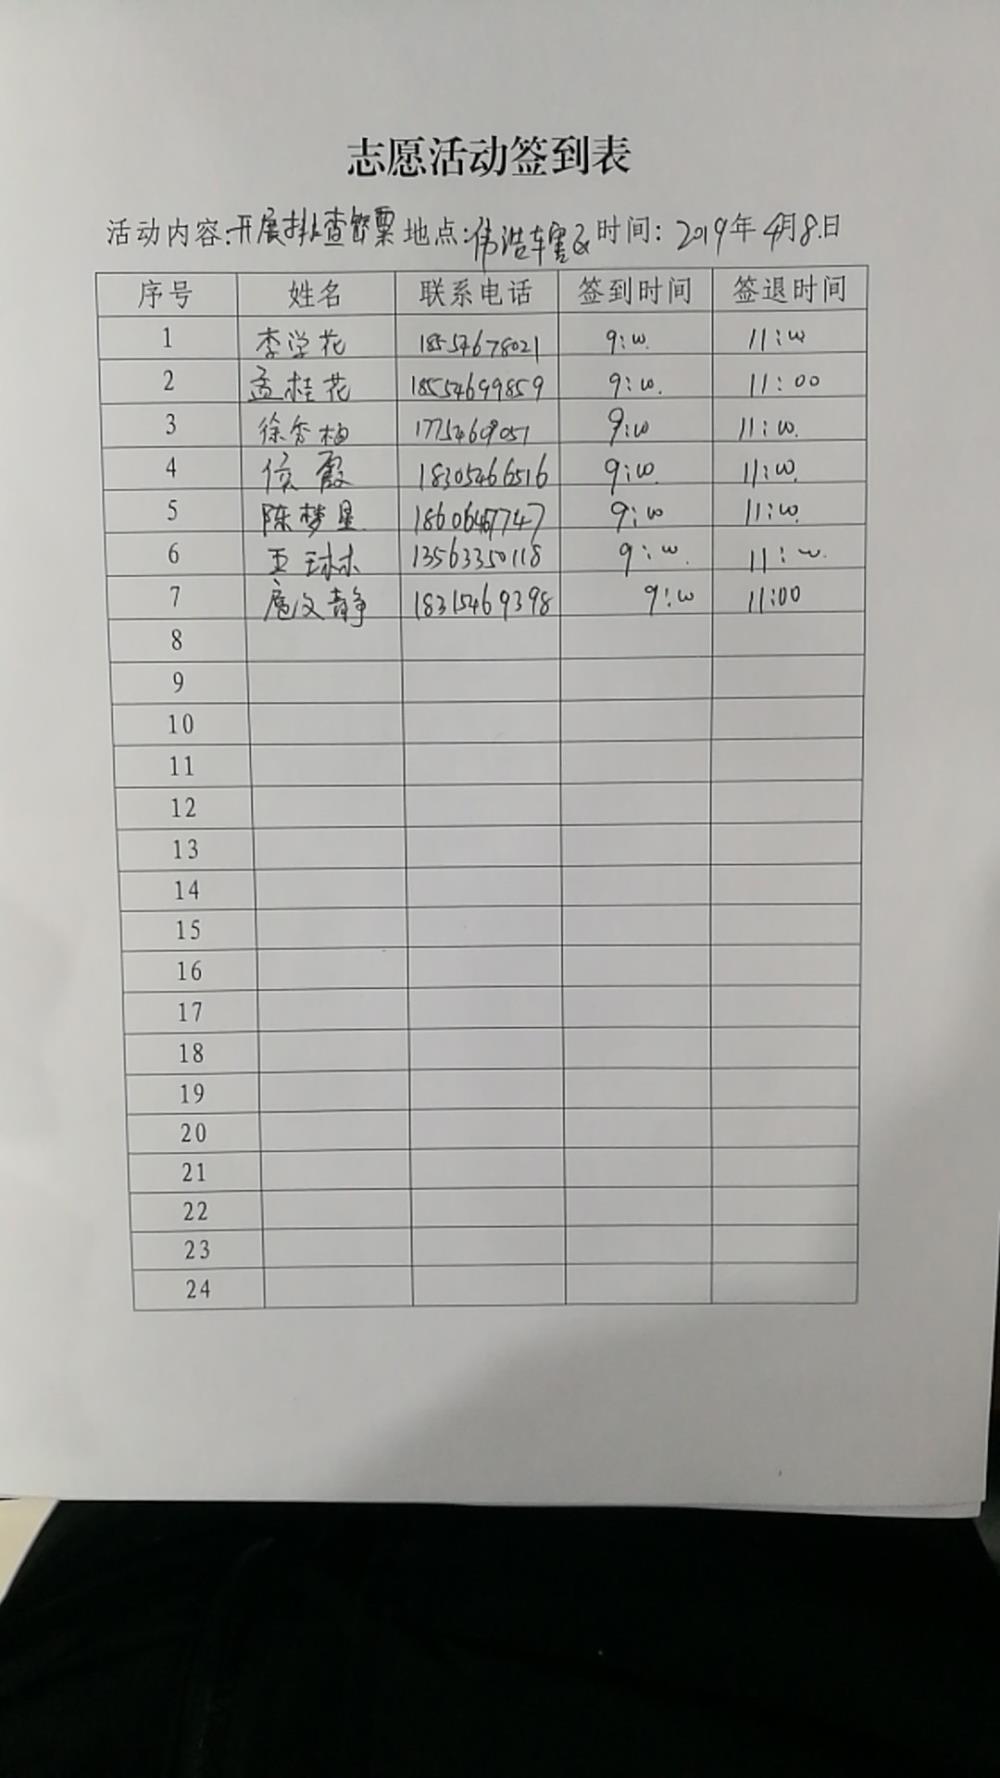 志愿活动签到表
活动内容:开展排查 地点:伟浩辖区 时间: 2019年4月8日
序号 姓名 联系电话 签到时间 签退时间
1 李学花 18554678021 9:00 11:00
2 孟桂花 18554699859 9:00 11:00
3 徐秀梅 9:00 11:00
4 侯霞 18305466516 9:00 11:00
5 陈梦星 9:00 11:00
6 王琳 13563350118 9:00 11:00
7 文静 18315469398 9:00 11:00
8
9
10
11
12
13
14
15
16
17
18
19
20
21
22
23
24